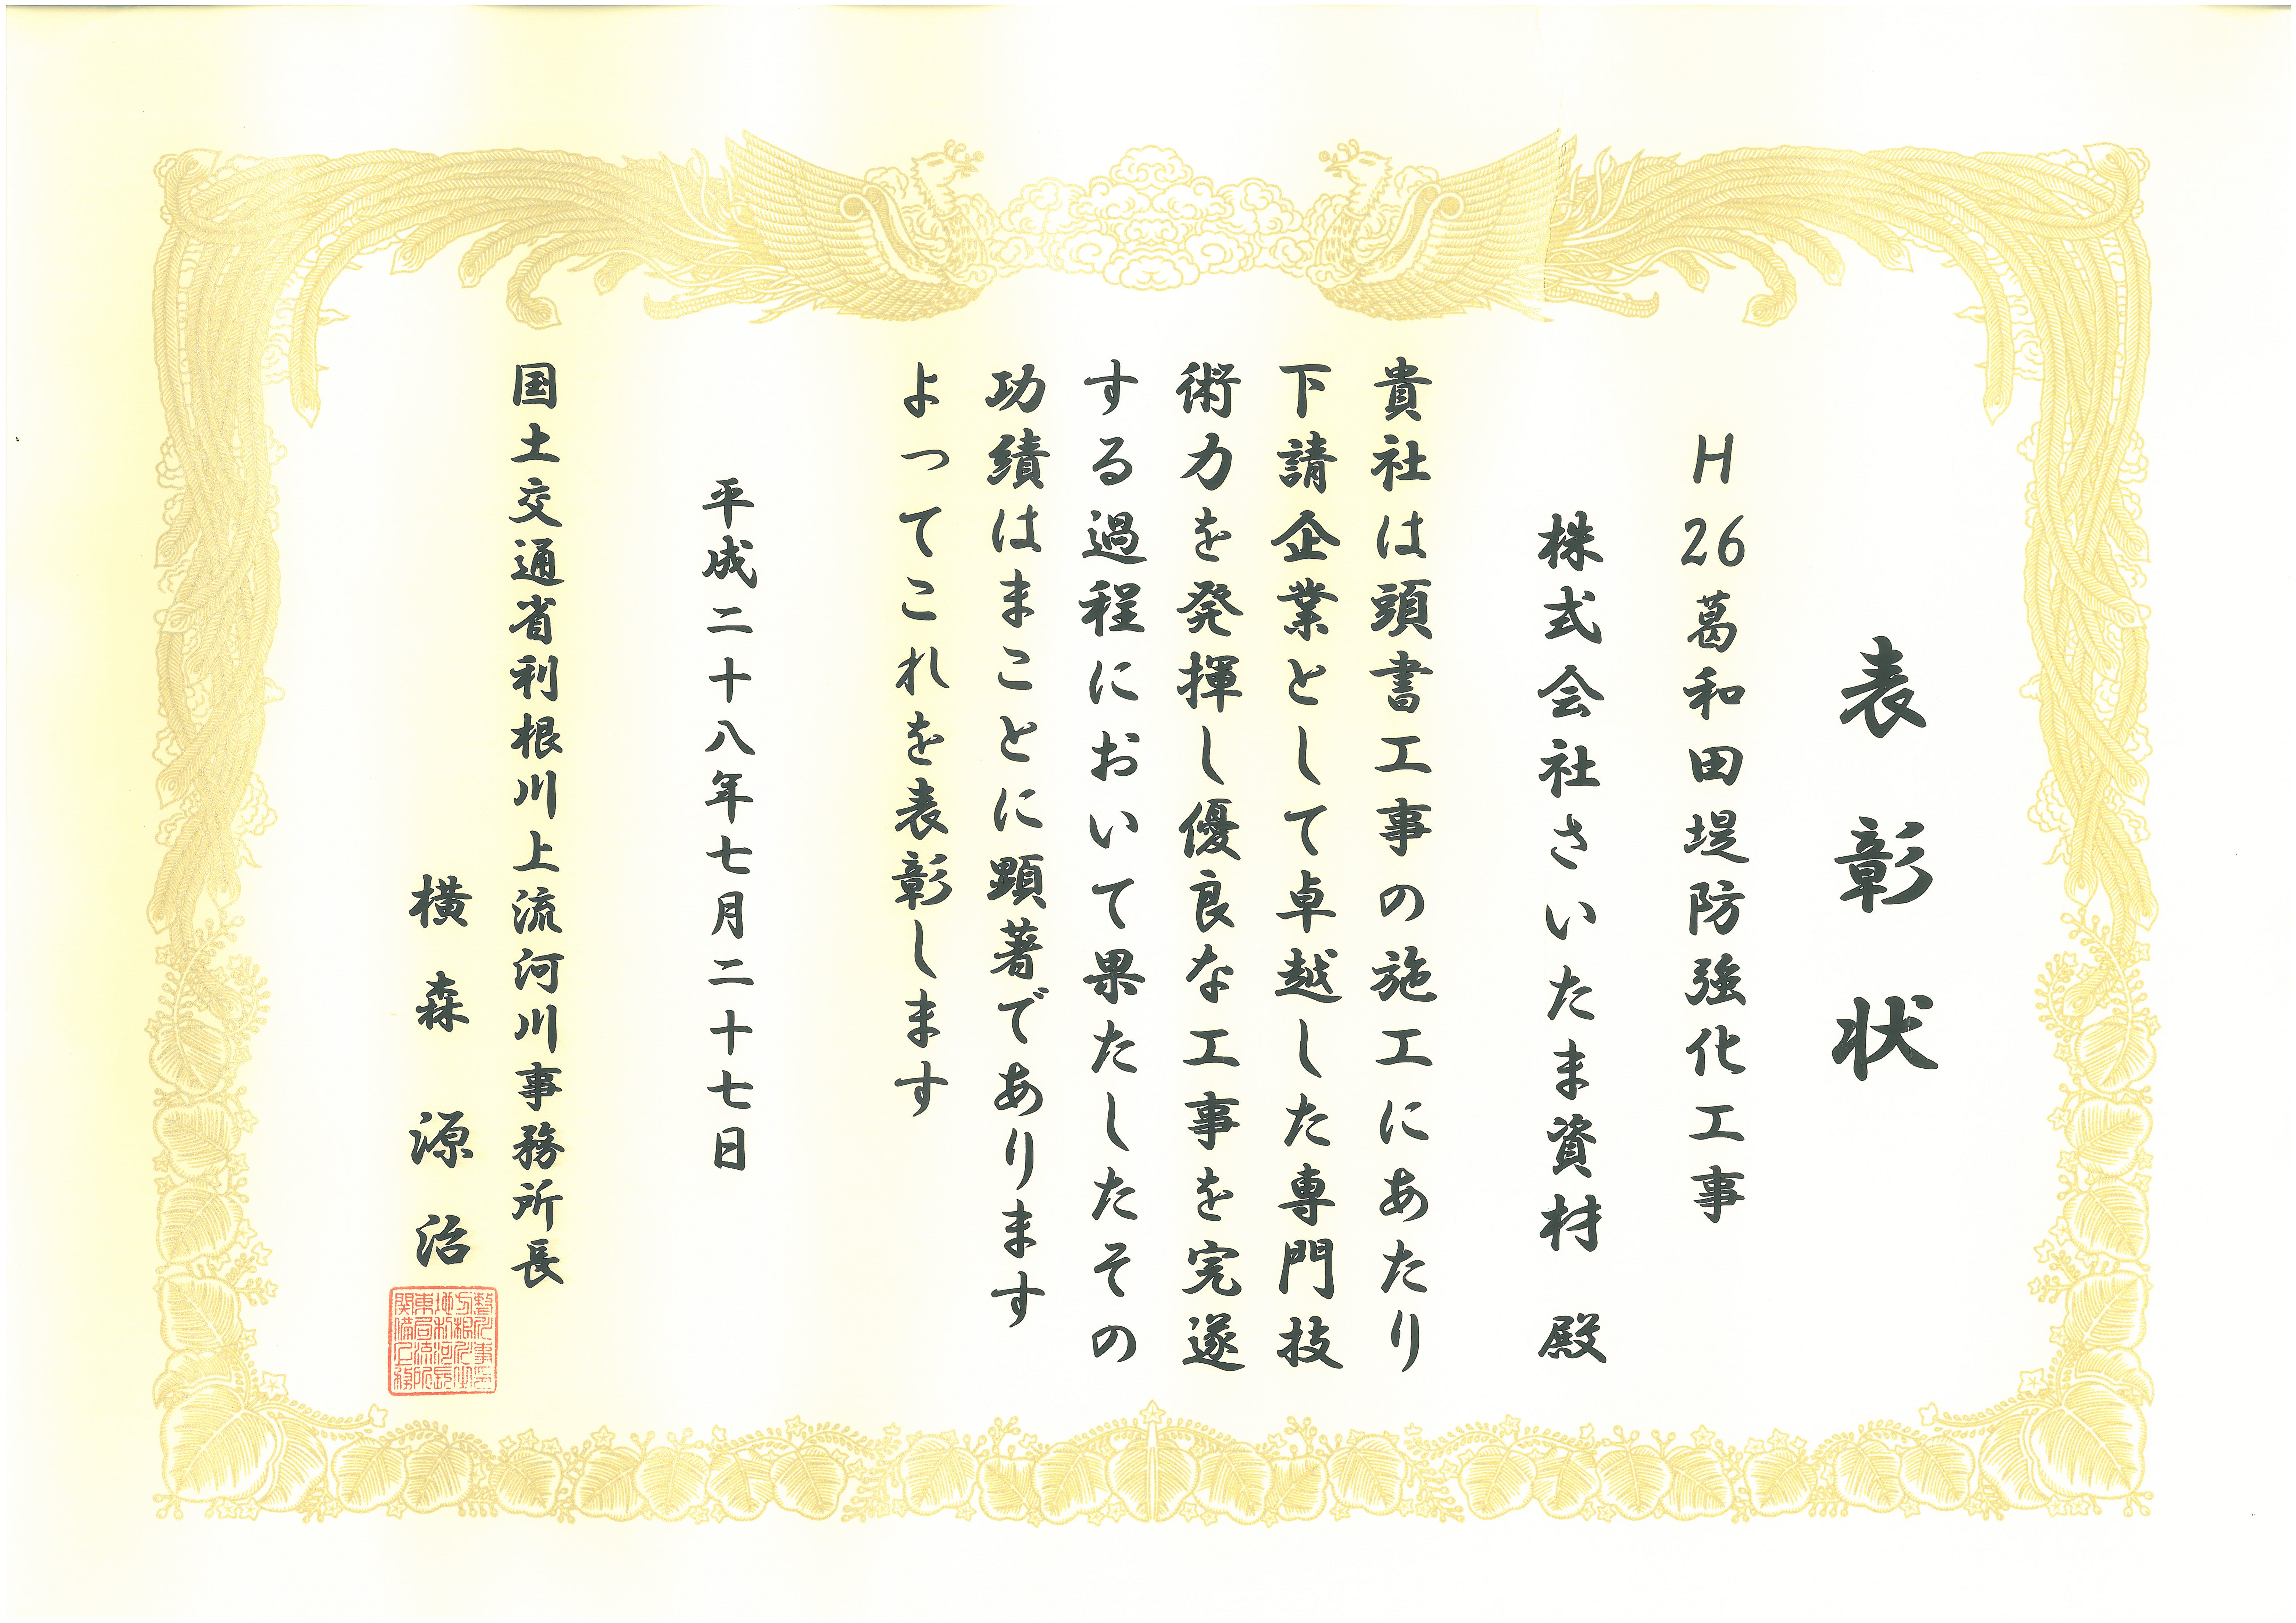 表彰状
H26葛和田堤防強化工事
株式会社さいたま資材 殿
貴社は頭書工事の施工にあたり
下請企業として卓越した専門技
術力を発揮し優良な工事を完遂
する過程において果たしたその
功績はまことに顕著であります
よってこれを表彰します
平成二十八年七月二十七日
国土交通省利根川上流河川事務所長
横森源治